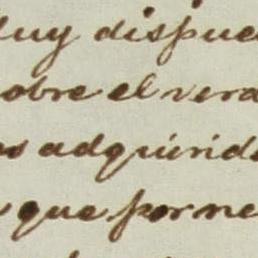 Muy dispue
sobre el vera
os adquirid
que por ne